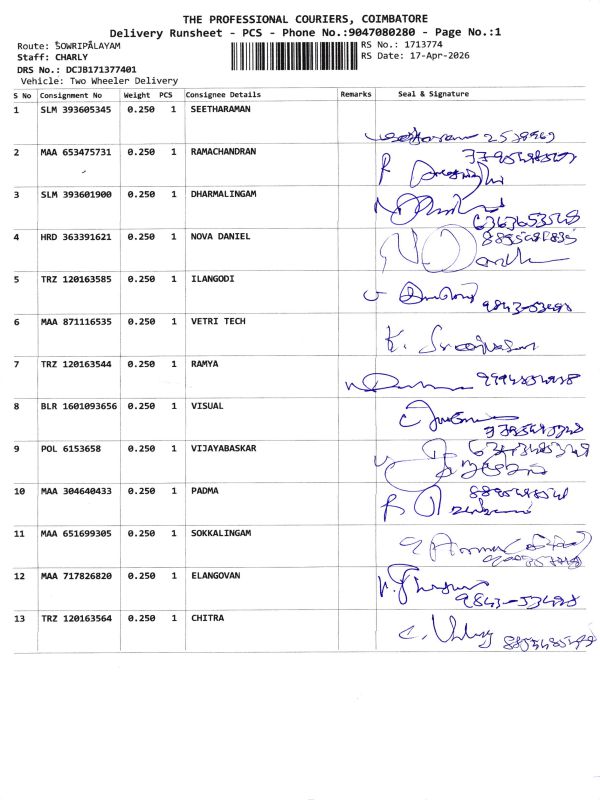 THE PROFESSIONAL COURIERS, COIMBATORE
Delivery Runsheet - PCS - Phone No.:9047080280 - Page No.:1
Route: SOWRIPALAYAM
RS No.: 1713774
Staff: CHARLY
RS Date: 17-Apr-2026
DRS No.: DCJB171377401
Vehicle: Two Wheeler Delivery
S No Consignment No Weight PCS Consignee Details Remarks Seal & Signature
1 SLM 393605345 0.250 1 SEETHARAMAN
2 MAA 653475731 0.250 1 RAMACHANDRAN
3 SLM 393601900 0.250 1 DHARMALINGAM
4 HRD 363391621 0.250 1 NOVA DANIEL
5 TRZ 120163585 0.250 1 ILANGODI
9843-53498
6 MAA 871116535 0.250 1 VETRI TECH
7 TRZ 120163544 0.250 1 RAMYA
8 BLR 1601093656 0.250 1 VISUAL
9 POL 6153658 0.250 1 VIJAYABASKAR
10 MAA 304640433 0.250 1 PADMA
11 MAA 651699305 0.250 1 SOKKALINGAM
12 MAA 717826820 0.250 1 ELANGOVAN
9843-53498
13 TRZ 120163564 0.250 1 CHITRA